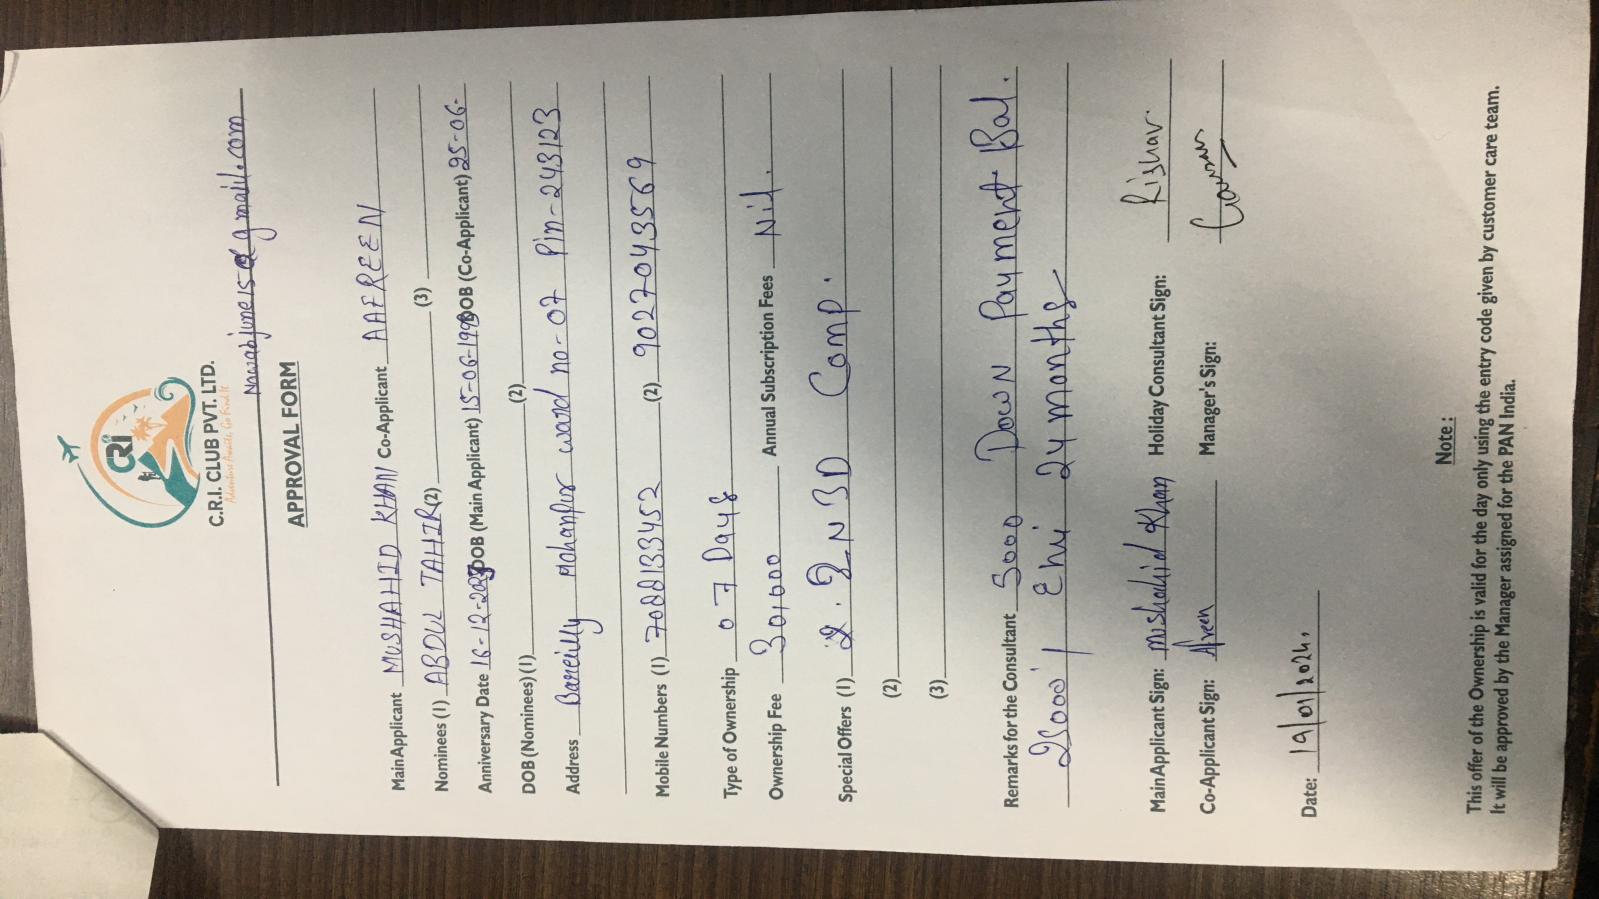 CRI
C.R.I. CLUB PVT. LTD.
Adventure Awaits, Go Find It
Nawabjune15@gmail.com
APPROVAL FORM
Main Applicant MUSHAHID KHAN Co-Applicant AAFREEN
Nominees (1) ABDUL TAHIR (2) (3)
Anniversary Date 16-12-2023 DOB (Main Applicant) 15-06-1998 DOB (Co-Applicant) 25-06-
DOB (Nominees) (1) (2)
Address Bareilly Mohanpur ward no-07 Pin-243123
Mobile Numbers (1) 7088133452 (2) 9027043569
Type of Ownership 07 Days
Ownership Fee 30,000 Annual Subscription Fees Nil.
Special Offers (1) 2. 2N3D Comp.
(2)
(3)
Remarks for the Consultant 5000 Down Payment Bal.
25000/ Emi 24 months
Main Applicant Sign: mushahid Khan Holiday Consultant Sign: Rishav
Co-Applicant Sign: Afreen Manager's Sign:
Date: 19/01/2024.
Note :
This offer of the Ownership is valid for the day only using the entry code given by customer care team.
It will be approved by the Manager assigned for the PAN India.